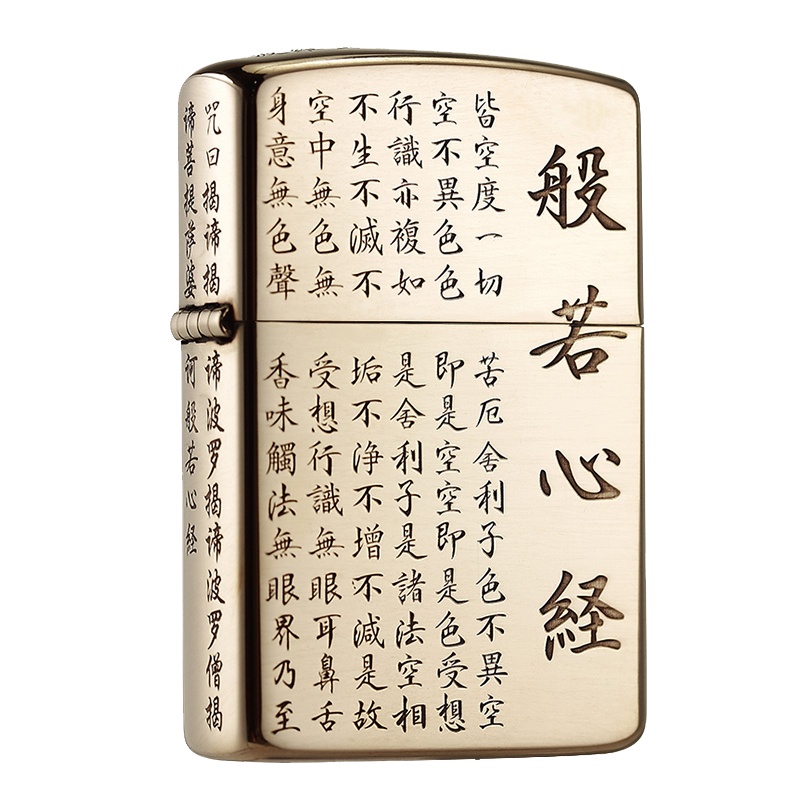 般若心経
皆空度一切苦厄舍利子色不異空
空不異色色即是空空即是色受想
行識亦複如是舍利子是諸法空相
不生不滅不垢不浄不增不減是故
空中無色無受想行識無眼耳鼻舌
身意無色聲香味觸法無眼界乃至
咒曰揭諦揭諦波罗揭諦波罗僧揭
諦菩提薩婆訶般若心経